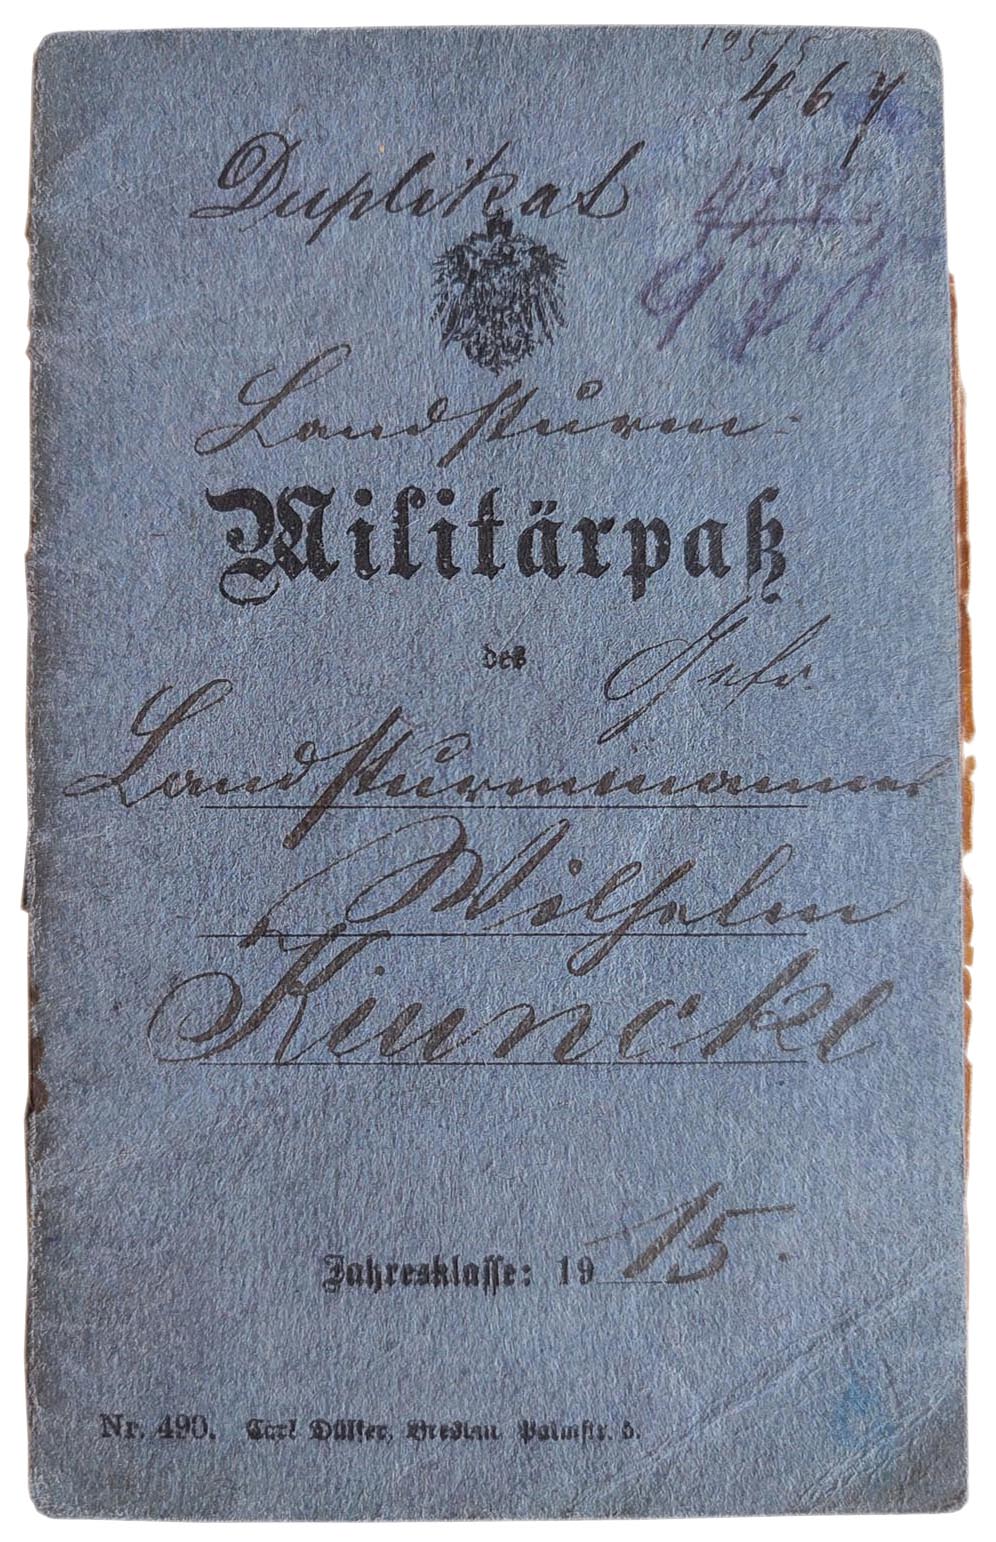 195/5
467
Duplikat
Landsturm-
Militärpaß
des Gefr.
Landsturmmannes
Wilhelm
Kiuncke
Jahresklasse: 1915.
Nr. 490. Carl Dülfer, Breslau, Palmstr. 5.